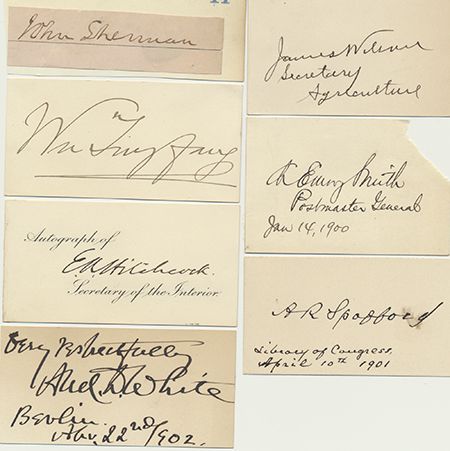 John Sherman
Wu Ting fang
Autograph of
E.A. Hitchcock.
Secretary of the Interior.
Very Respectfully
And. D. White
Berlin.
Nov. 22nd/902.
James Wilson
Secretary
Agriculture
Ch Emory Smith
Postmaster General
Jan 14, 1900
A R Spofford
Library of Congress.
April 10th 1901